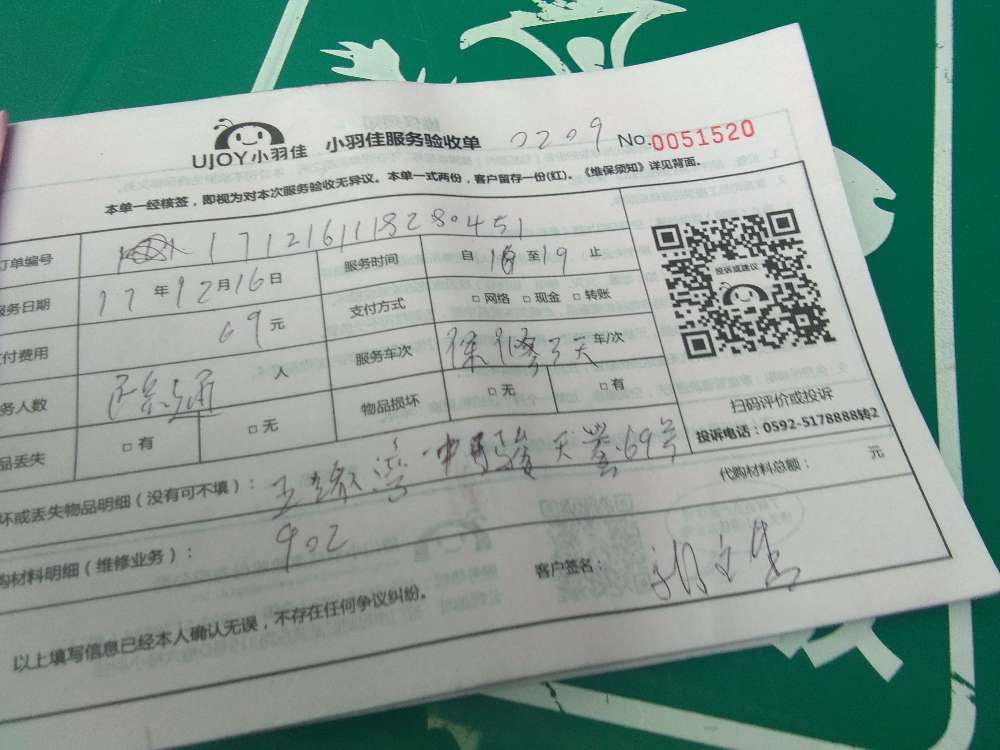 UJOY小羽佳 小羽佳服务验收单 0209 No.0051520
本单一经核签，即视为对本次服务验收无异议。本单一式两份，客户留存一份(红)。《维保须知》详见背面。
订单编号 1712161118280451
服务日期 17年12月16日 服务时间 自18至19止
付费用 69元 支付方式 □网络 □现金 □转账
务人数 人 服务车次 车/次
品丢失 □有 □无 物品损坏 □无 □有
投诉或建议
扫码评价或投诉
投诉电话：0592-5178888转2
坏或丢失物品明细（没有可不填）： 五缘湾中骏天誉69号
购材料明细（维修业务）： 902 代购材料总额： 元
以上填写信息已经本人确认无误，不存在任何争议纠纷。 客户签名：